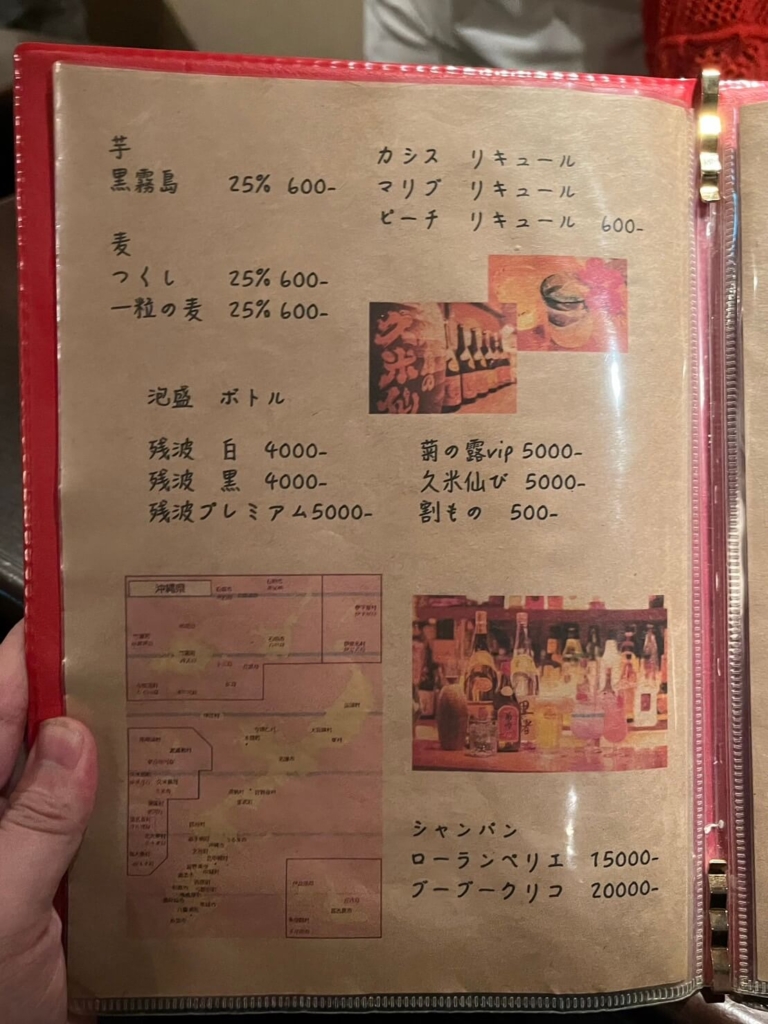 芋
黒霧島 25% 600-
麦
つくし 25% 600-
一粒の麦 25% 600-
カシス リキュール
マリブ リキュール
ピーチ リキュール 600-
久米仙
泡盛 ボトル
残波 白 4000-
残波 黒 4000-
残波プレミアム5000-
菊の露vip 5000-
久米仙び 5000-
割もの 500-
沖縄県
シャンパン
ローランペリエ 15000-
ブーブークリコ 20000-